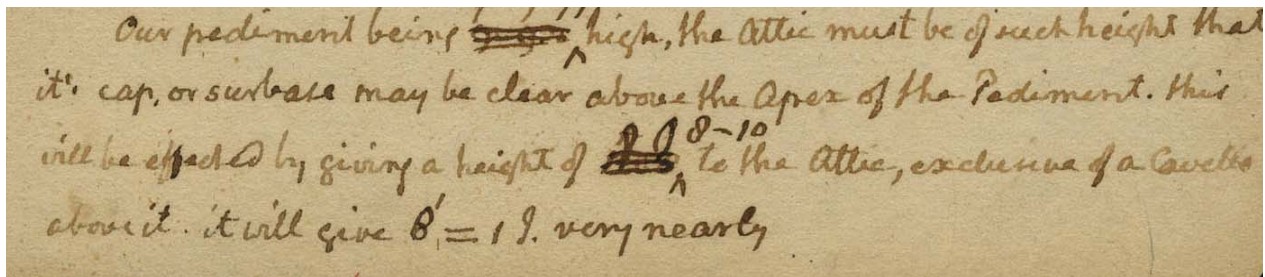 Our pediment being high, the Attic must be of such height that
it's cap, or surbase may be clear above the Apex of the Pediment. this
will be effected by giving a height of 8-10 to the Attic, exclusive of a Cavetto
above it. it will give 8' = 1 9. very nearly